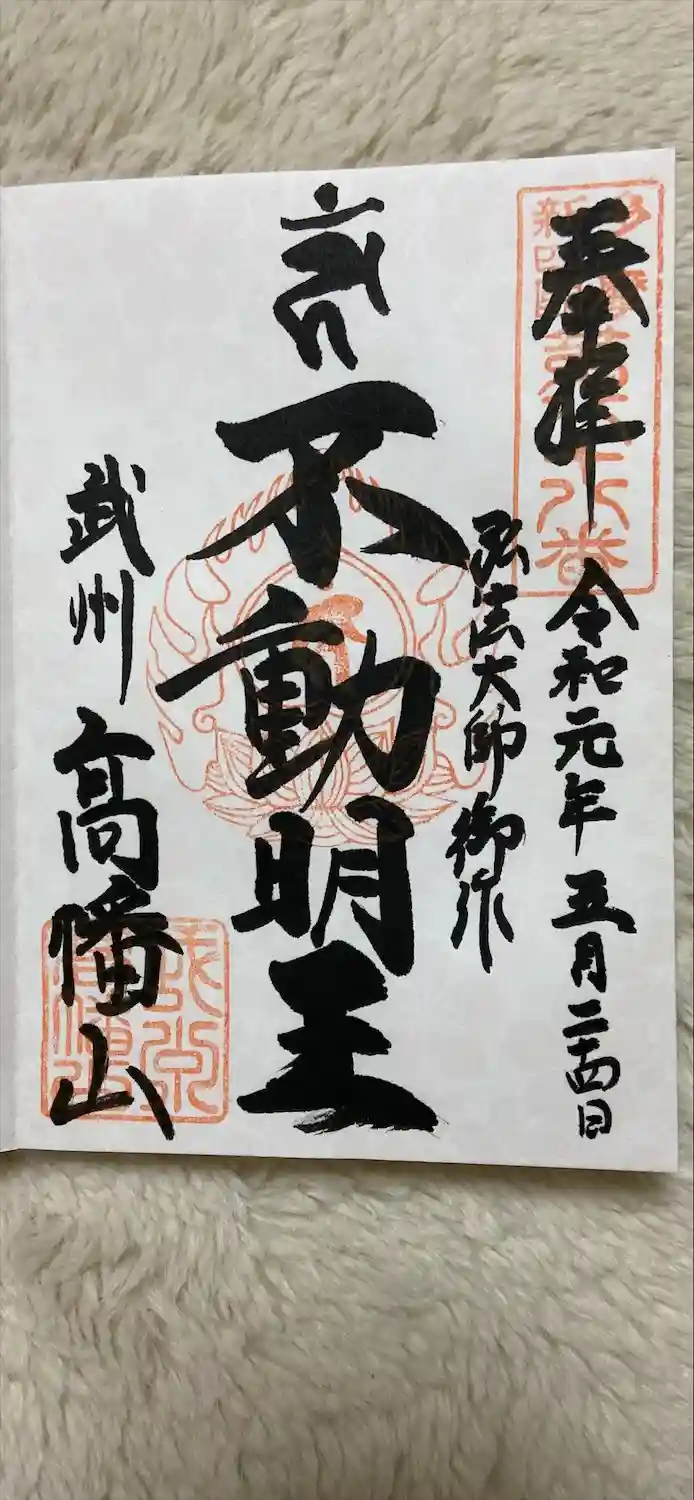 奉拝
令和元年 五月二十四日
弘法大師御作
不動明王
武州 高幡山